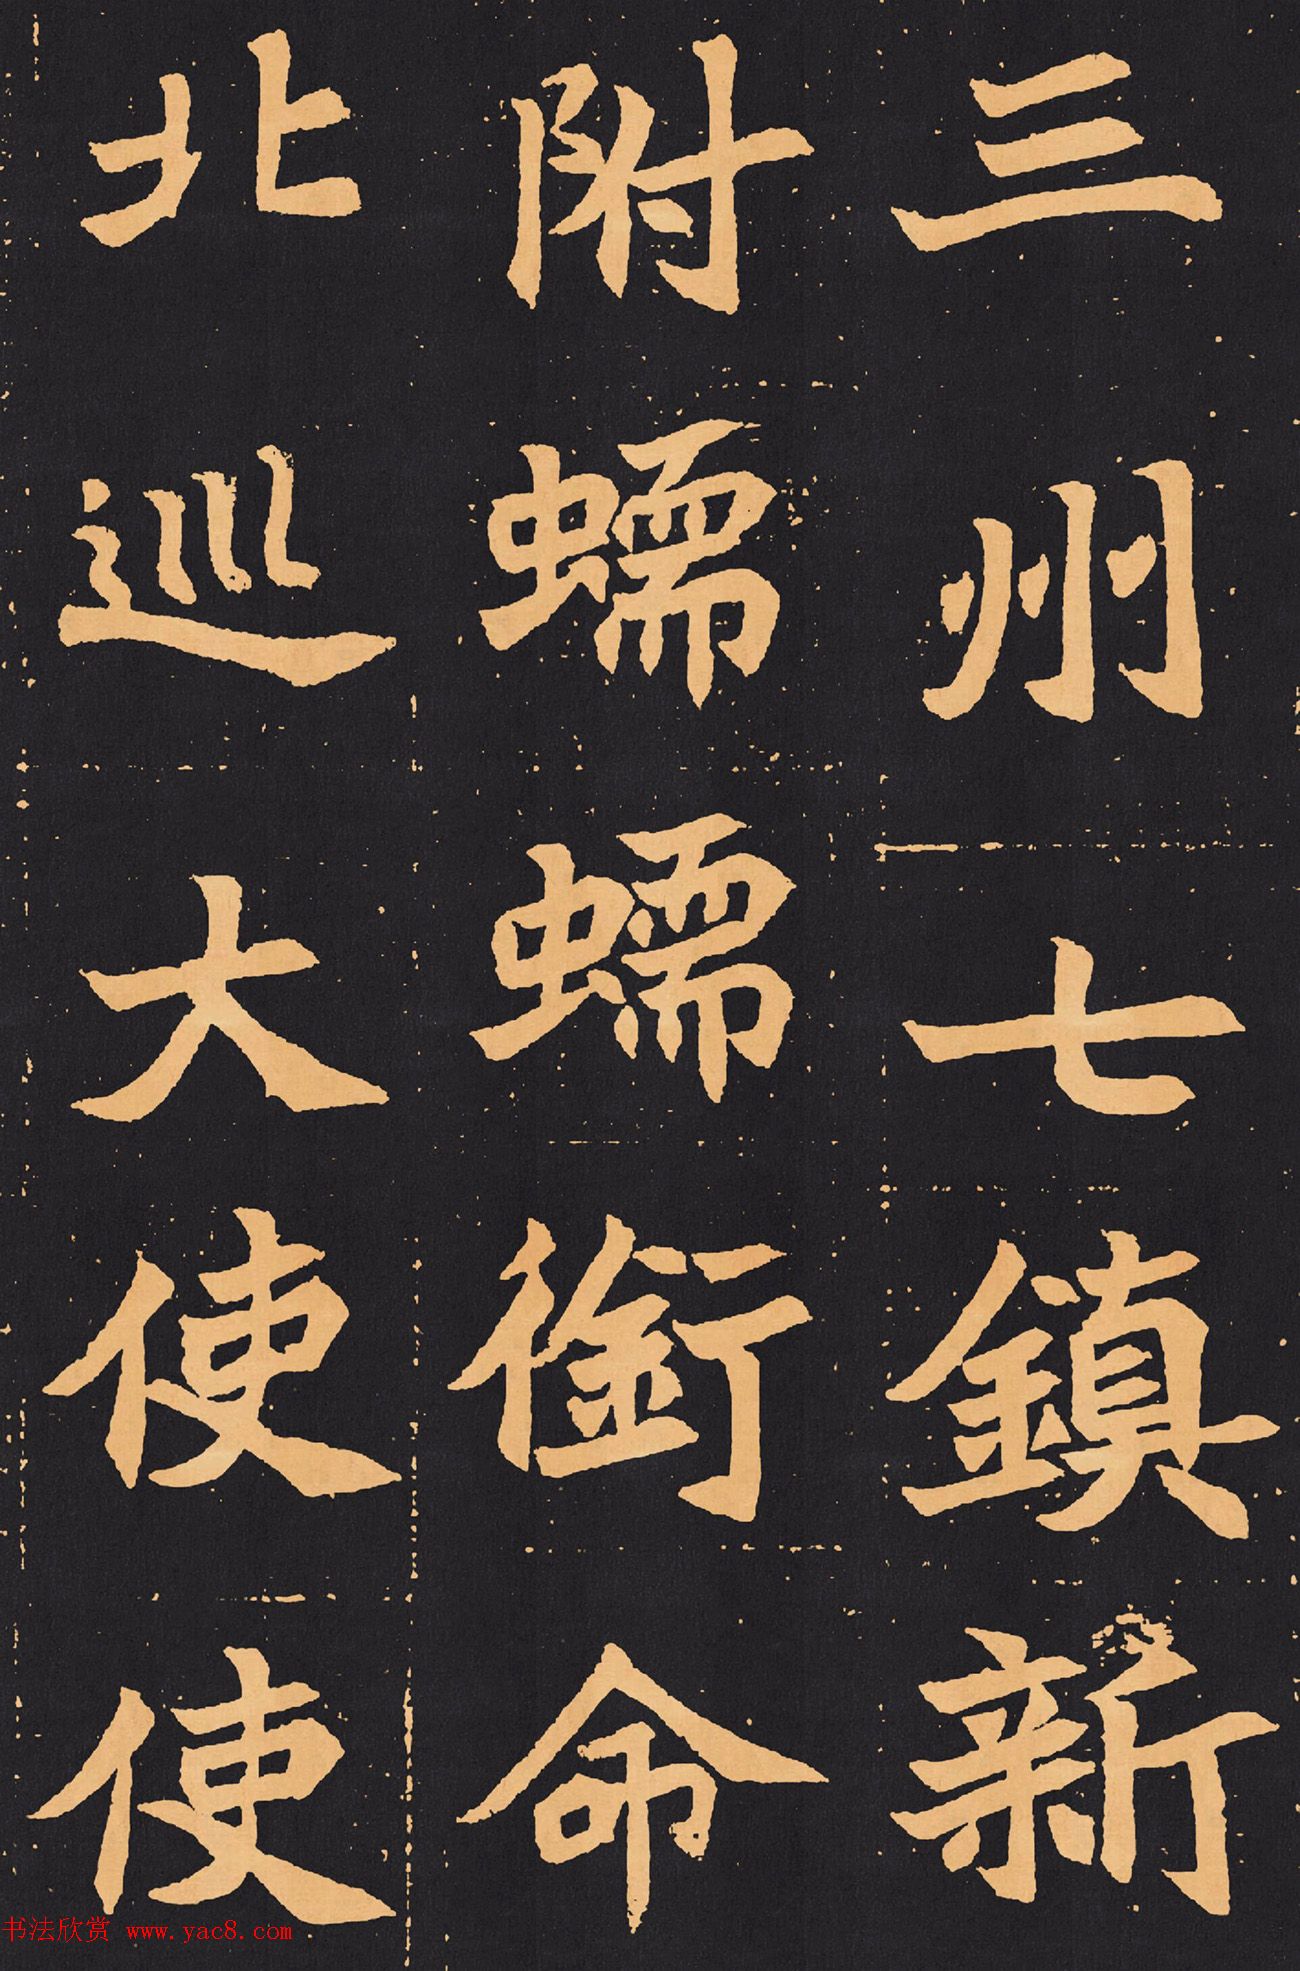 三州七鎮新
附蠕蠕銜命
北巡大使使
书法欣赏 www.yac8.com